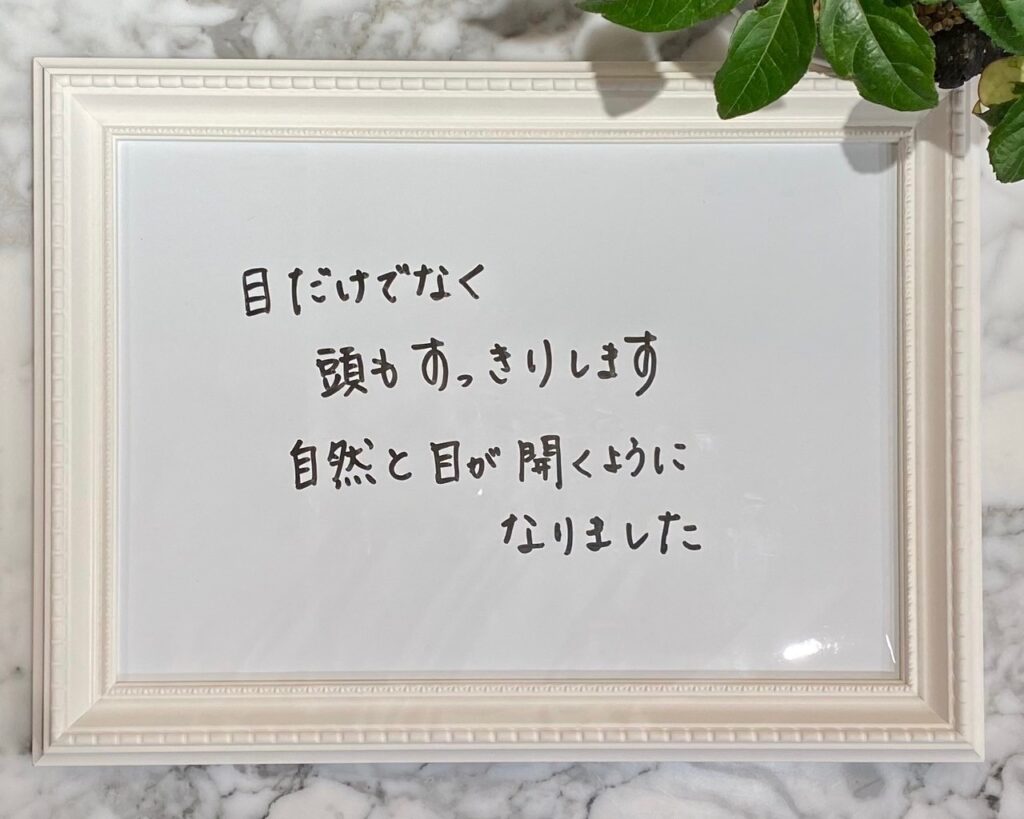 目だけでなく
頭もすっきりします
自然と目が開くように
なりました